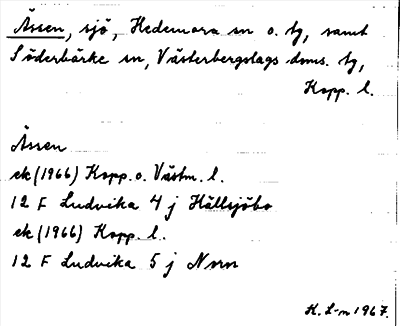 Ässen, sjö, Hedemora sn o. tg, samt
Söderbärke sn, Västerbergslags doms. tg,
Kopp. l.
Ässen
ek (1966) Kopp. o. Västm. l.
12 F Ludvika 4 j Hällsjöbo
ek (1966) Kopp. l.
12 F Ludvika 5 j Norn
H. L-n 1967.